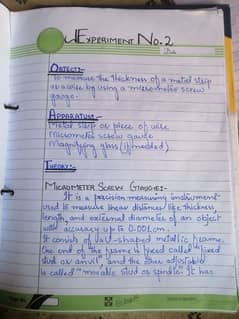 EXPERIMENT NO. 2
OBJECT:-
To measure the thickness of a metal strip
or a wire by using a micrometer screw
gauge.
APPARATUS:-
Metal strip or piece of wire
Micrometer screw gauge
Magnifying glass (if needed)
THEORY:-
MICROMETER SCREW GAUGE:-
It is a precision measuring instrument
used to measure linear distances like thickness,
length, and external diameter of an object
with accuracy up to 0.001cm.
It consists of U-shaped metallic frame.
One end of the frame is fixed called "fixed
stud or anvil" and the other adjustable
is called "movable stud or spindle". It has